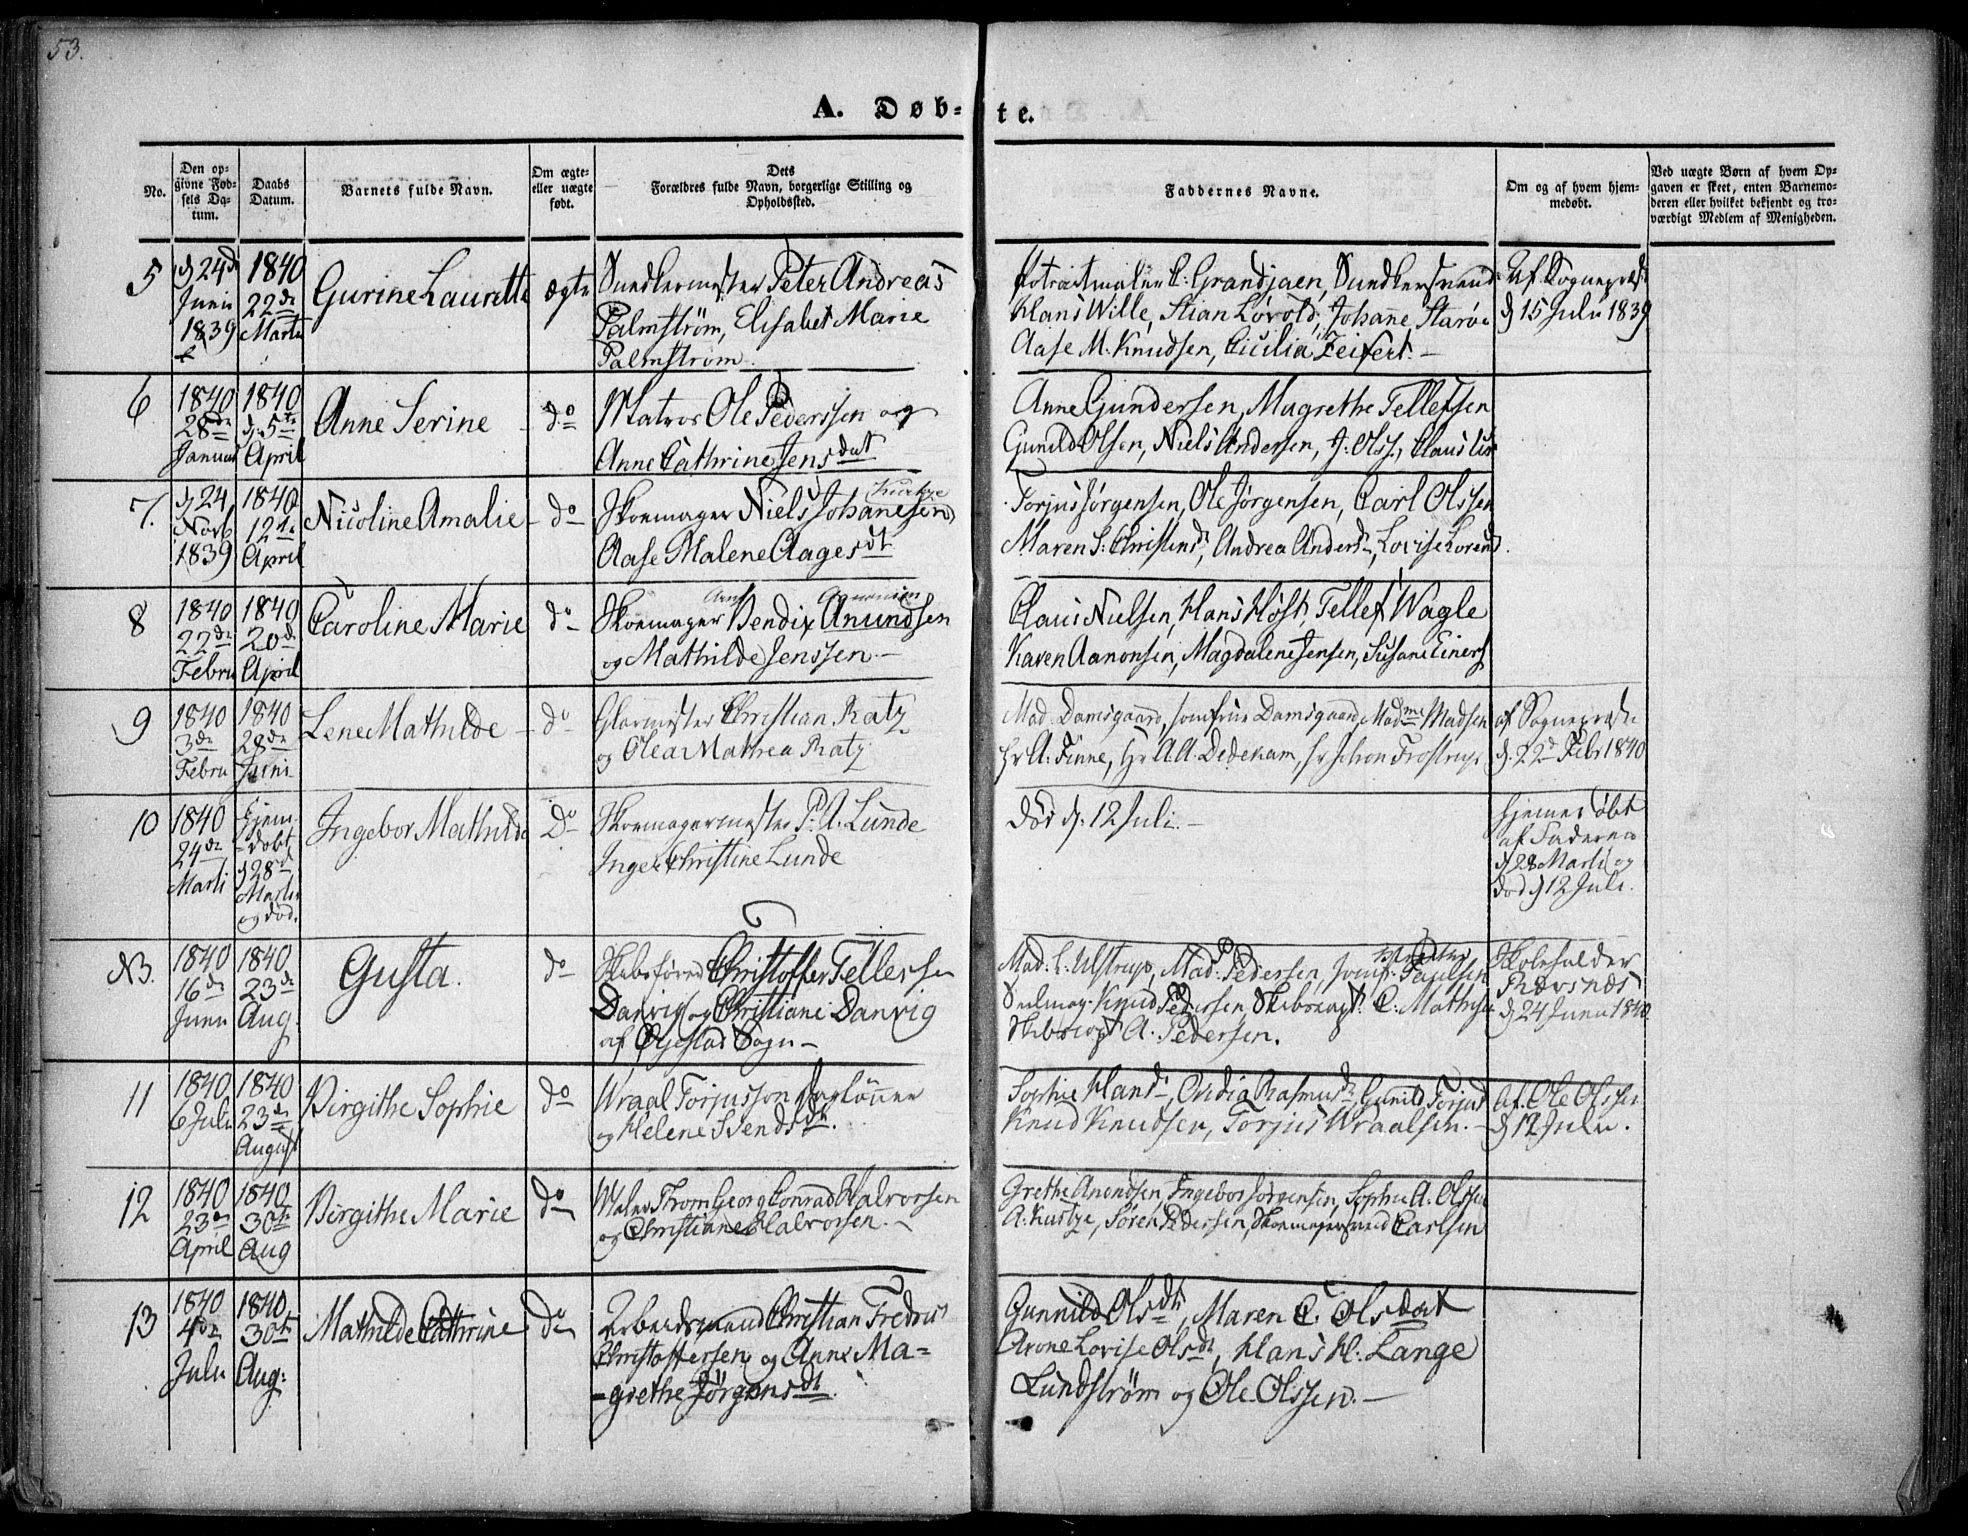 53.
A. Døb-te.
No.
Den op-
givne Fød-
sels Da-
tum.
Daabs
Datum.
Barnets fulde Navn.
Om ægte-
eller uægte
født.
Dets
Forældres fulde Navn, borgerlige Stilling og
Opholdssted.
Faddernes Navne.
Om og af hvem hjem-
medøbt.
Ved uægte Børn af hvem Op-
gaven er skeet, enten Barnemo-
deren eller hvilket bekjendt og tro-
værdigt Medlem af Menigheden.
5
d 24d
Junii
1839
1840
22de
Martii
Gurine Laurette
ægte
Peter Andreas
Palmstrøm, Elisabet Marie
Palmstrøm.
Grandjaen,
Hans Wille, Stian Løvold, Johanne Starøe
Aase M. Knudsen, Cicilia Zeifert. -
Af Sognepræst
d 15 Julii 1839
6
1840
28de
Januar
1840
d. 5te
April
Anne Serine
do
Matros Ole Pederssen og
Anne Cathrine Jensdat
Anne Gundersen, Magrethe Tellefsen
Gunild Olsen, Niels Andersen, J. Olss.,
7.
d 24
Novb
1839
1840
12te
April
Nicoline Amalie
do
Skoemager Niels Johanesen
Aase Malene Aagesdt
Torjus Jørgensen, Ole Jørgensen, Carl Olssen
Maren S. Christensd, Andrea Andersd, Lovise Lorends.
8
1840
22de
Febru
1840
20de
April
Caroline Marie
do
Skoemager Bendix Anundsen
og Mathilde Jenssen -
Claus Nielsen, Hans Høst, Tellef Wagle
Karen Aanonsen, Magdalene Jensen, Susane Einers
9
1840
3de
Febru
1840
28de
Juni
Lene Mathilde
do
Glarmester Christian Ratz
og Olea Mathea Ratz
Mad. Damsgaard, Jomfrue Damsgaard, Madme Madsen
hr A. Finne, hr A.A. Dedekam,
af Sognepræsten
d. 22de Febr 1840
10
1840
24de
Marti
Hjem-
døbt
d 28de
Martii
og død.
Ingebor Mathilde
Do
Skoemagermester P. A. Lunde
Inger Christine Lunde
Død d. 12 Juli. -
Hjemedøbt
af Faderen
d 28 Marti og
død d 12 Juli.
N3.
1840
16de
Junii
1840
23de
Aug.
Gusta.
do
Skibsfører Christoffer Tellefsen
Danvig og Christiane Danvig
af Øjestad Sogn -
Mad. L. Ulstrup, Mad. Pedersen, Jomf. Paulsen
Knud Pedersen, Skibscapt. C. Mathisen
Skibscapt A. Pedersen.
Skoleholder
d 24 Junii 1840
11
1840
6 Julii
1840
23de
August
Birgithe Sophie
do
Wraal Torjusson Daglønner
og Helene Svendsdt.
Sophie Hansd, Ovidia Rasmusd, Gunild Torjusd
Knud Knudsen, Torjus Wraalsen. -
Af Ole Olssen
d 12 Julii.
12
1840
23de
April
1840
30te
Aug
Birgithe Marie
do
Maler Thom Georg Conrad Halvorsen
og Christiane Halvorsen. -
Grethe Anondsen, Ingebor Jørgensen, Sophie A. Olssen
A. Kurtze, Søren Pedersen, Skoemagersvend Carlsen
13
1840
4de
Julii
1840
30te
Aug.
Mathilde Cathrine
do
Arbeidsmand Christian Fredric
Christoffersen og Anne Ma-
-grethe Jørgensdt.
Gunnild Olsdt, Maren C. Olsdat
Arone Lovise Olsdt, Hans H. Lange
Lundstrøm og Ole Olssen. -